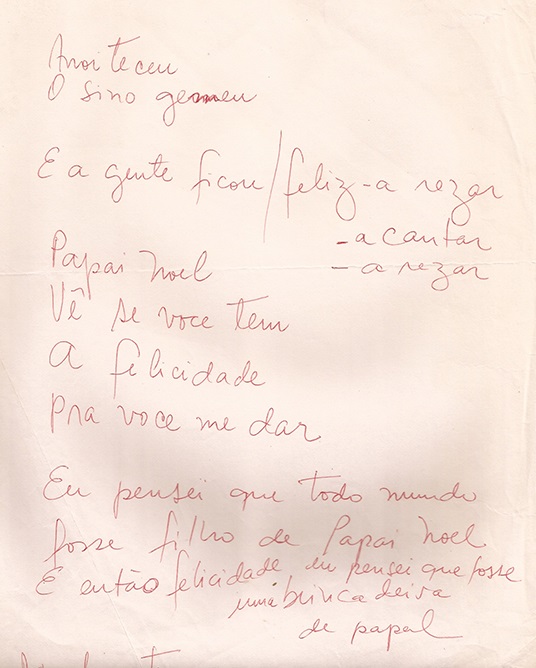 Anoiteceu
O sino gemeu
E a gente ficou / feliz - a rezar
- a cantar
- a rezar
Papai Noel
Vê se voce tem
A felicidade
pra voce me dar
Eu pensei que todo mundo
fosse filho de Papai Noel
E então felicidade eu pensei que fosse
uma brincadeira
de papel